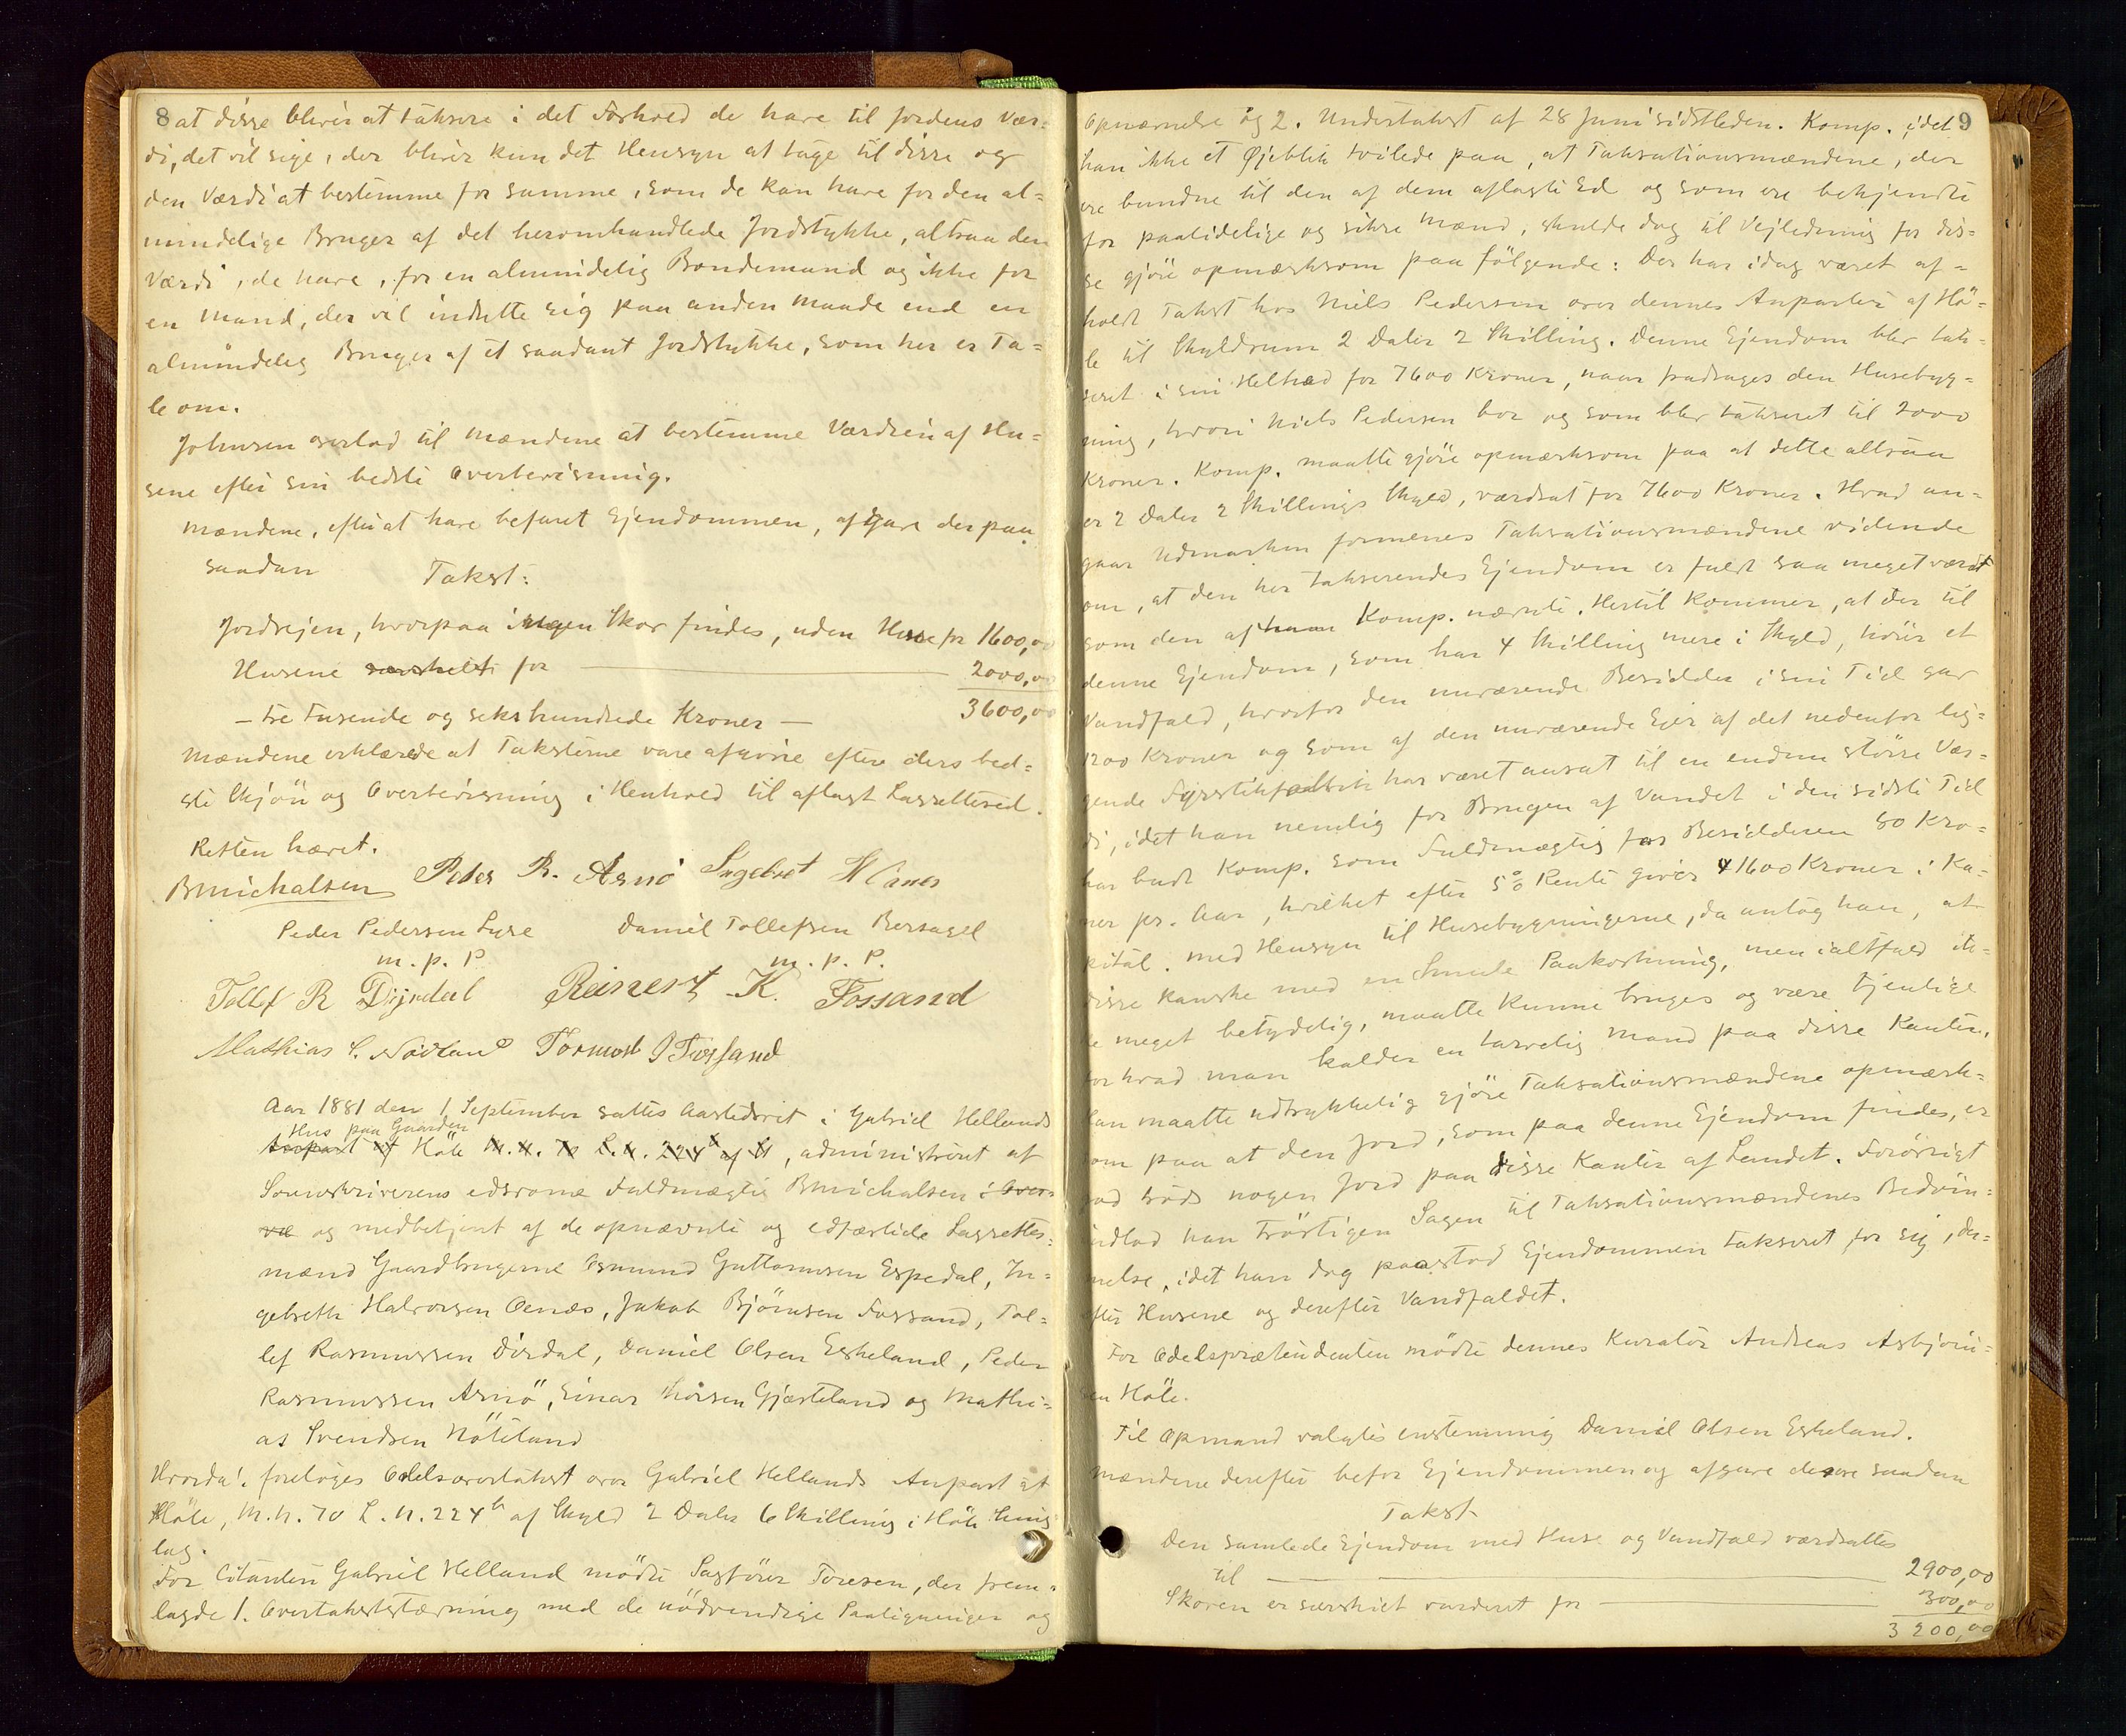 8 at disse bliver at taksere i det Forhold de have til Jordens Vær-
di, det vil sige, der bliver kun det Hensyn at tage til disse og
den Værdi at bestemme for samme, som de kan have for den al-
mindelige Bruger af det heromhandlede Jordstykke, altsaa den
Værdi, de have, for en almindelig Bondemand og ikke for
en Mand, der vil indrette sig paa anden Maade end en
almindelig Bruger af et saadant Jordstykke, som her er Ta-
le om.
Johnsen overlod til Mændene at bestemme Værdien af Hu-
sene efter sin bedste Overbevisning.
Mændene, efterat have befaret Ejendommen, afgave derpaa
saadan Takst:
Jordvejen, hvorpaa ingen Skov findes, uden Huse for 1600,00
Husene særskilt for 2000,00
– tre Tusende og sekshundrede Kroner – 3600,00
Mændene erklærede at Taksterne vare afgivne efter ders bed-
ste Skjøn og Overbevisning i Henhold til aflagt Lagretteed.
Retten hævet.
BMichalsen Peder R. Arnö Ingebret H Oanes
Peder Pedersen Lyse Daniel Tollefsen Bersagel
m. p. P. m. p. P.
Tollef R Dirdal Reinert K. Fossand
Mathias S. Nödland Tormod J Fossand
Aar 1881 den 1 September sattes Aastedsret i Gabriel Hellands
Hus paa Gaarden
Anpart af Höle M. N. 70 L. N. 224 b af S, administreret af
Sorenskriverens edsvorne Fuldmægtig BMichalsen i Over-
væ og medbetjent af de opnævnte og edfæstede Lagrettes-
mænd Gaardbrugerne Osmund Guttormsen Espedal, In-
gebreth Halvorsen Oanes, Jakob Bjørnsen Fossand, Tol-
lef Rasmussen Dirdal, Daniel Olsen Eskeland, Peder
Rasmussen Arnö, Einar Thorsen Gjæsteland og Mathi-
as Svendsen Nöteland
Hvorda! foretoges Odelsovertakst over Gabriel Hellands Anpart af
Höle, M. N. 70 L. N. 224 b af Skyld 2 Daler 6 Skilling i Höle Thing
lag.
For Citanten Gabriel Helland mödte Sagförer Toresen, der frem-
lagde 1. Overtakststævning med de nödvendige Paategninger og
9
Opnævnelse og 2. Undertakst af 28 Juni sidstleden. Komp. idet
han ikke et Øjeblik tvilede paa, at Taksationsmændene, der
ere bundne til den af dem aflagte Ed og som ere bekjendte
for paalidelige og sikre Mænd, skulde dog til Vejledning for dis-
se gjöre opmærksom paa fölgende: Der har idag været af-
holdt Takst hos Niels Pedersen over dennes Anparter af Hö-
le til Skyldsum 2 Daler 2 Skilling. Denne Ejendom blev tak-
seret i sin Helhed for 7600 Kroner, naar fradrages den Husebyg-
ning, hvori Niels Pedersen bor og som blev takseret til 2000
Kroner. Komp. maatte gjöre opmærksom paa at dette altsaa
er 2 Daler 2 Skillings Skyld, værdsat for 7600 Kroner. Hvad an-
gaar Udmarken formenes Taksationsmændene vidende
om, at den her takserendes Ejendom er fuldt saa meget værdt
som den af ham Komp. nævnte. Hertil kommer, at der til
denne Ejendom, som har 4 Skilling mere i Skyld, hörer et
Vandfald, hvorfor den nuværende Besidder i sin Tid gav
1200 Kroner og som af den nuværende Ejer af det nedenfor lig-
gende Fyrstikfabrik har været ansat til en endnu större Vær-
di, idet han nemlig for Brugen af Vandet i den sidste Tid
har budt Komp. som Fuldmægtig for Besidderen 80 Kro-
ner pr. Aar, hvilket efter 5 % Rente giver 1600 Kroner i Ka-
pital. Med Hensyn til Husebygningerne, da antog han, at
disse kanske med en Smule Paakostning, men ialtfald ik-
ke meget betydelig, maatte kunne bruges og være tjenlige
for hvad man kalder en tarvelig Mand paa disse Kanter.
Han maatte udtrykkelig gjöre Taksationsmændene opmærk-
som paa at den Jord, som paa denne Ejendom findes, er
god trods nogen Jord paa disse Kanter af Landet. Forövrigt
indlod han trøstigen Sagen til Taksationsmændenes Bedöm-
melse, idet han dog paastod Ejendommen takseret for sig, der-
efter Husene og derefter Vandfaldet.
For Odelsprætendenten mödte dennes Kurator Andreas Asbjørn-
sen Höle.
Til Opmand valgtes enstemmig Daniel Olsen Eskeland.
Mændene derefter befor Ejendommen og afgave derover saadan
Takst
Den samlede Ejendom med Huse og Vandfald værdsattes
til 2900,00
Skoven er særskilt vurderet for 300,00
3 200,00